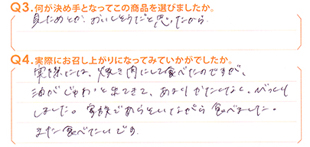 Q3.何が決め手となってこの商品を選びましたか。
見ためとか、おいしそうだと思ったから
Q4.実際にお召し上がりになってみていかがでしたか。
実際には、焼き肉にして食べたのですが、
油がじゅわっと出てきて、あまりかたくなく、びっくり
しました。家族でおいしいといいながら食べました。
また食べたいです。